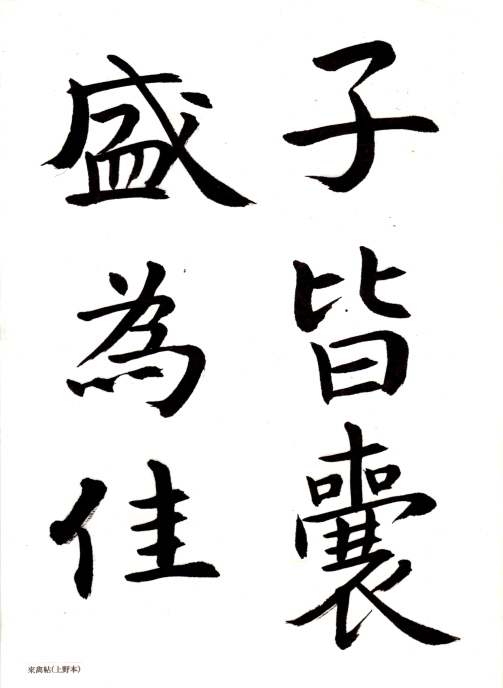 子皆囊
盛為佳
來禽帖(上野本)